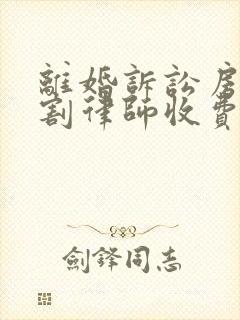 離婚訴訟房
割律師收費
劍鋒同志